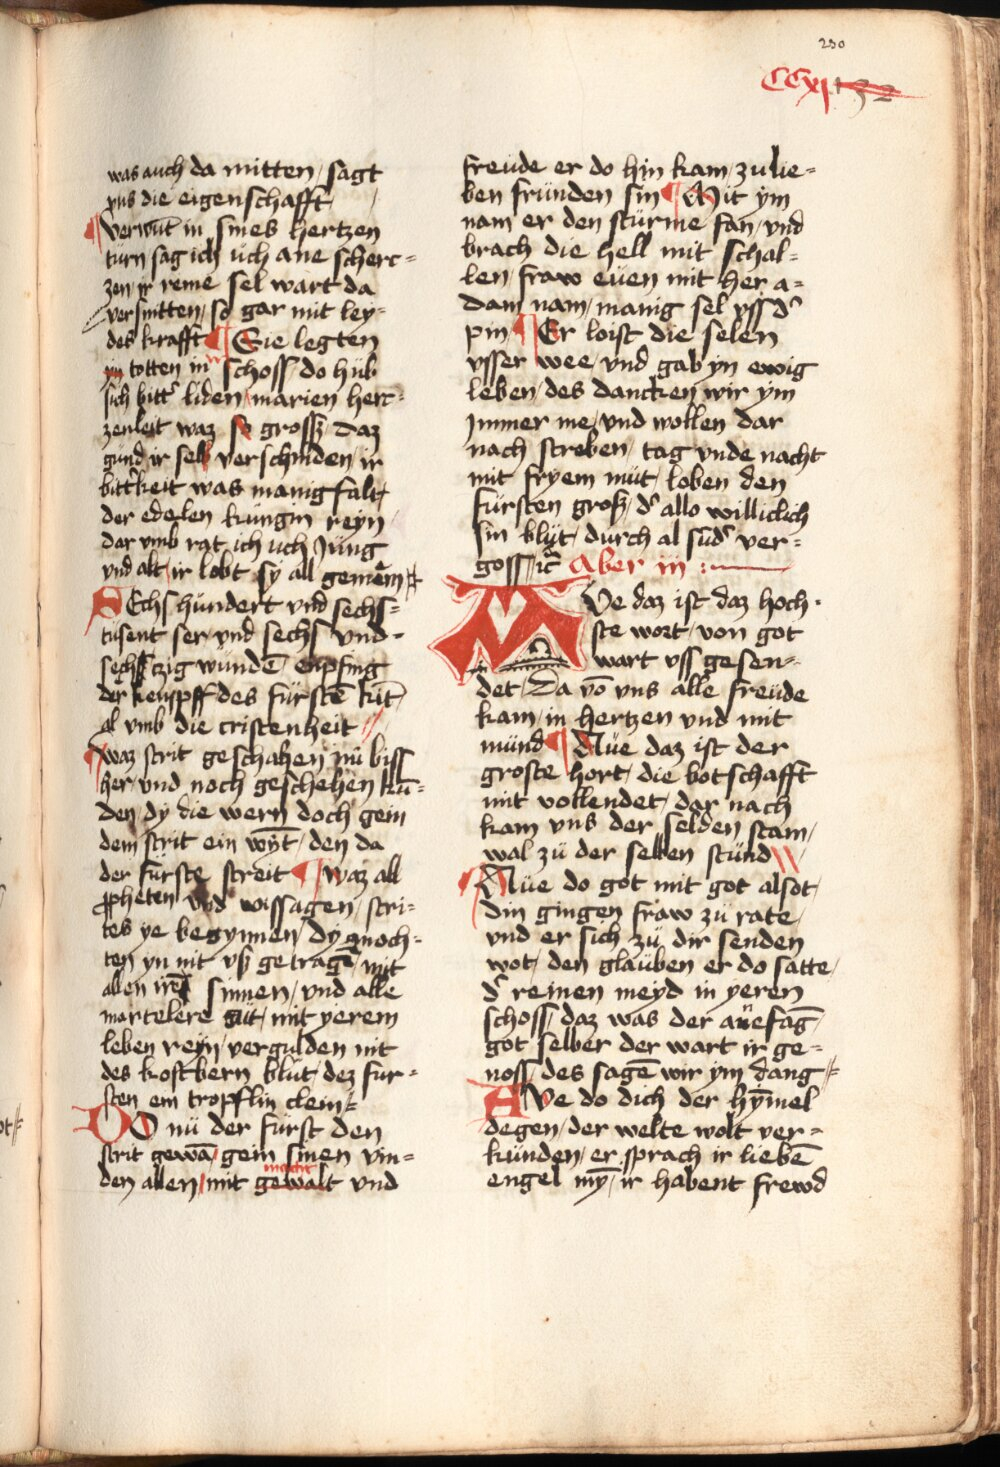 230
CCxj 132
was auch da mitten / sagt
vns die eigenschafft /
Verwūt in sines hertzen
türn sag ich üch ane scherc=
zen / ir reine sel wart da
versnitten / so gar mit ley=
des krafft Sie legten
yn totten in schoss do hüb
sich bittr liden / marien herc=
zenleit waz so grossz daz
gund ir selb verschniden / ir
bittkeit was manigfalt /
der edelen küngin reyn /
dar vmb rat ich uch Jüng
vnd alt / ir lobt sy all gemein
SEchs hündert vnd sechs=
tusent ser / vnd sechs vnd=
sechsczig wündē enpfing
der kempff des fürstē kīt
al vmb die cristenheit
waz strit geschahen nü biss
her / vnd noch geschehen kū=
den / dy die wern doch gein
dem strit ein wÿt / den da
der fürste streit waz all
ppheten vnd wissagen / stri=
tes ye begynnen / dy moch=
ten yn nit vß getragē / mit
allen irē sinnen / vnd alle
martelere güt / mit yerem
leben reyn / vergulden nit
des kostbern blüt / dez für=
sten ein tropflin clein
DO nü der fürst den
strit gewā / gein sinen vin=
macht
den allen / mit gewalt vnd
freüde er do hin kam / zu lie=
ben fründen sin Mit ym
nam er den stürme fan / vnd
brach die hell mit schal=
len / fraw euen mit her a=
dam nam / manig sel vss dr
pin Er loist die selen
vsser wee / vnd gab yn ewig
leben / des dancken wir ym
ymmer me / vnd wollen dar
nach streben / tag vnde nacht
mit fryem müt / loben den
fürsten groß / dr allo williclich
sin blüt / durch al sūdr ver=
goss / ic̄ Aber in :
AVe daz ist daz hoch=
ste wort / von got
wart vss gesen=
det / Da vō vns alle freüde
kam / in hertzen vnd mit
münd Aüe daz ist der
groste hort / die botschafft
mit vollendet / dar nach
kam vns der selden stam /
wal zü der selben stünd
Aüe do got mit got alsot /
din gingen fraw zü rate /
vnd er sich zü dir senden
wot / den glaüben er do satte /
dr reinen meyd in yeren
schoss / daz was der anefāg /
got selber der wart ir ge=
noss / des sagē wir ym dang
AVe do dich der hȳmel
degen / der welte wolt ver=
künden / er sprach ir liebē
engel mȳ / ir habent frewd